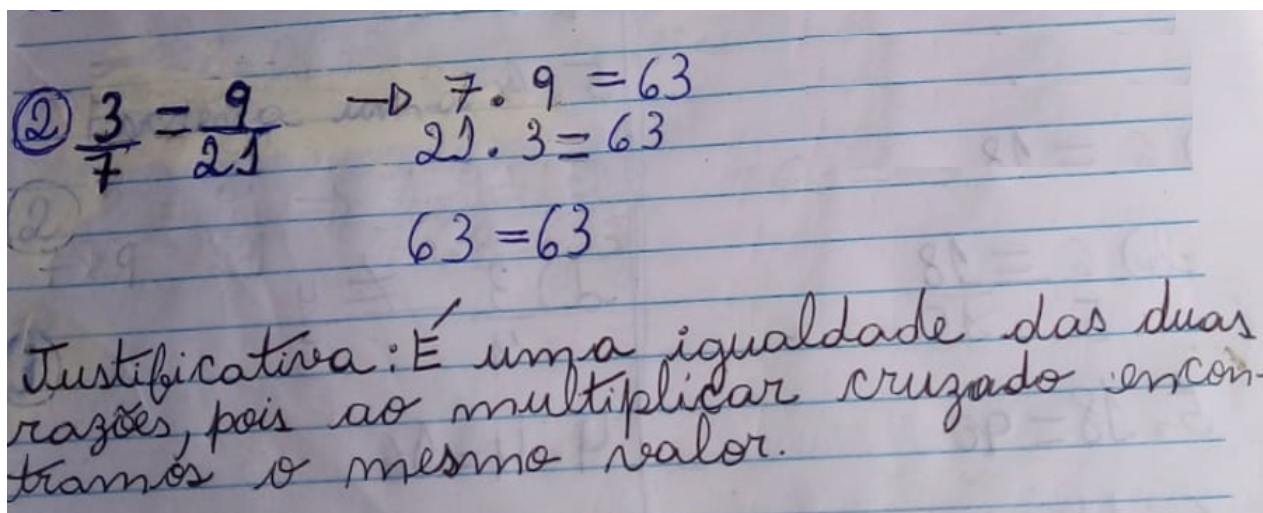 ② 3/7 = 9/21 → 7 . 9 = 63
21 . 3 = 63
63 = 63
Justificativa: É uma igualdade das duas
razões, pois ao multiplicar cruzado encon-
tramos o mesmo valor.